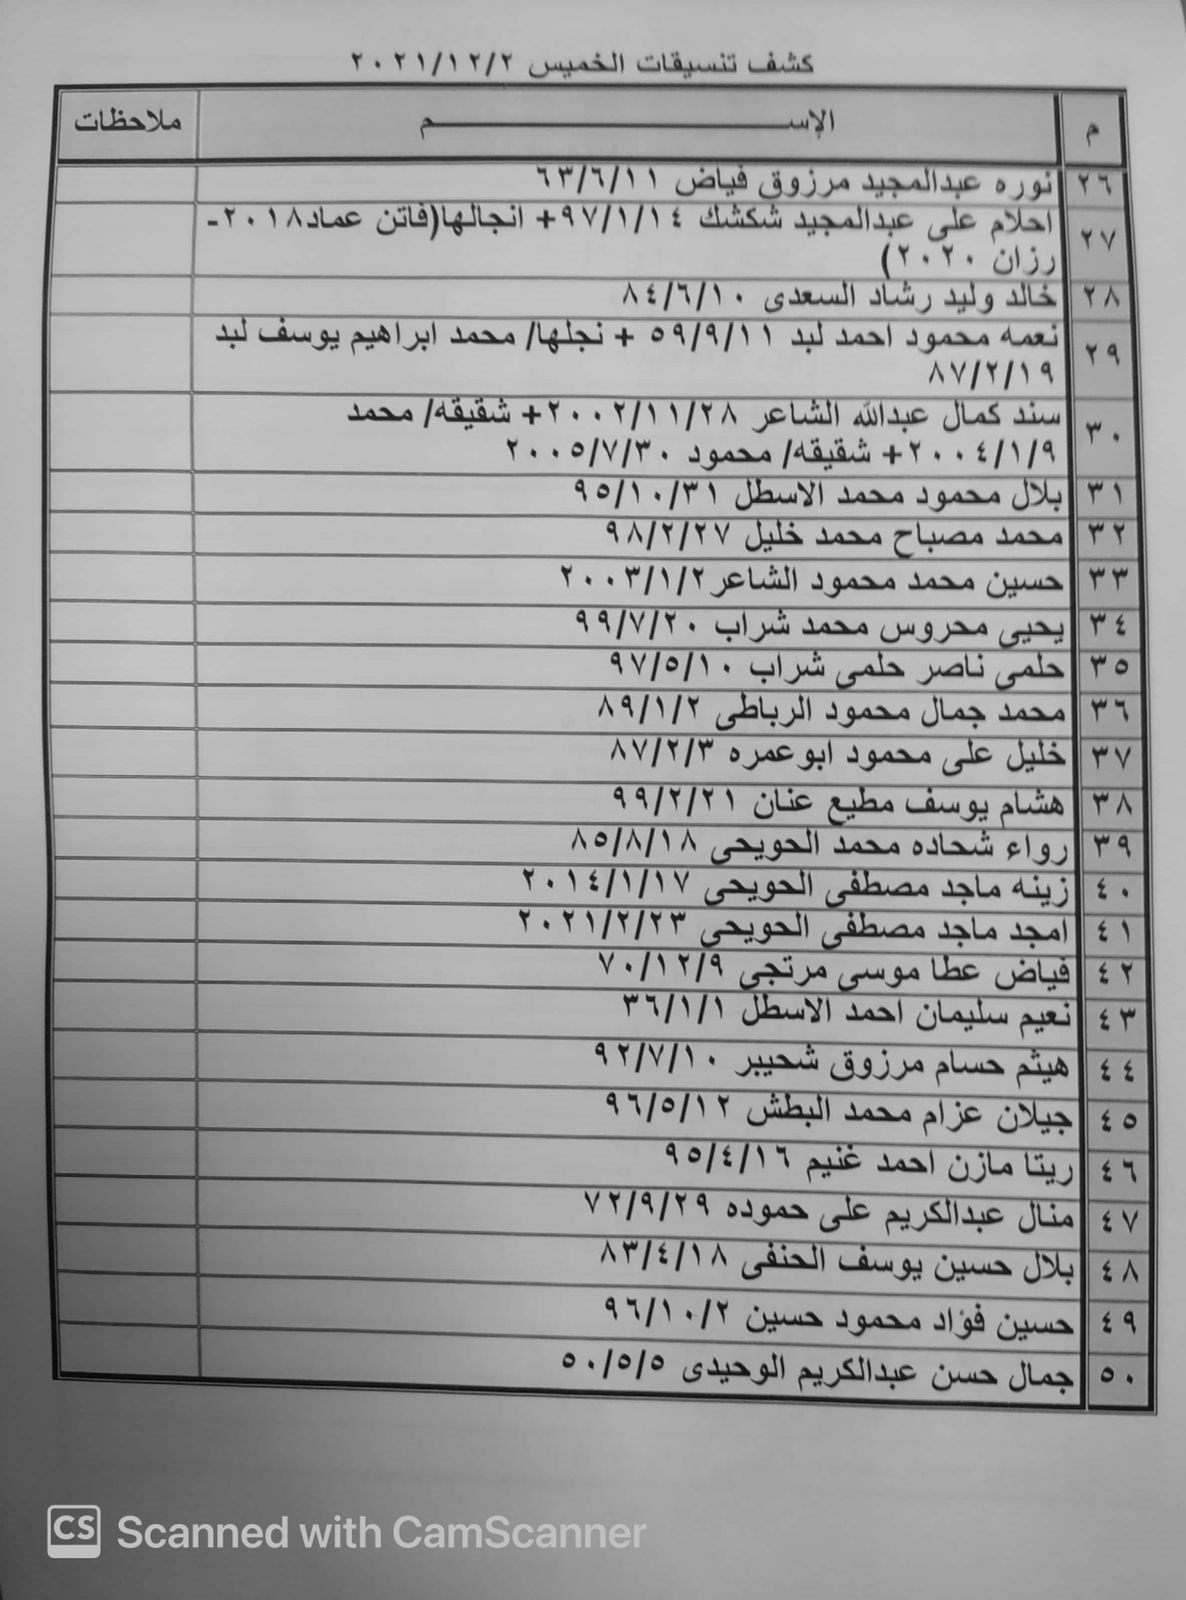 كشف تنسيقات الخميس ٢٠٢١/١٢/٢
م الإســـــــــم ملاحظات
٢٦ نوره عبدالمجيد مرزوق فياض ٦٣/٦/١١
٢٧ احلام على عبدالمجيد شكشك ٩٧/١/١٤+ انجالها(فاتن عماد٢٠١٨-
رزان ٢٠٢٠)
٢٨ خالد وليد رشاد السعدى ٨٤/٦/١٠
٢٩ نعمه محمود احمد لبد ٥٩/٩/١١ + نجلها/ محمد ابراهيم يوسف لبد
٨٧/٢/١٩
٣٠ سند كمال عبدالله الشاعر ٢٠٠٢/١١/٢٨+ شقيقه/ محمد
٢٠٠٤/١/٩+ شقيقه/ محمود ٢٠٠٥/٧/٣٠
٣١ بلال محمود محمد الاسطل ٩٥/١٠/٣١
٣٢ محمد مصباح محمد خليل ٩٨/٢/٢٧
٣٣ حسين محمد محمود الشاعر٢٠٠٣/١/٢
٣٤ يحيى محروس محمد شراب ٩٩/٧/٢٠
٣٥ حلمى ناصر حلمى شراب ٩٧/٥/١٠
٣٦ محمد جمال محمود الرباطى ٨٩/١/٢
٣٧ خليل على محمود ابوعمره ٨٧/٢/٣
٣٨ هشام يوسف مطيع عنان ٩٩/٢/٢١
٣٩ رواء شحاده محمد الحويحى ٨٥/٨/١٨
٤٠ زينه ماجد مصطفى الحويحى ٢٠١٤/١/١٧
٤١ امجد ماجد مصطفى الحويحى ٢٠٢١/٢/٢٣
٤٢ فياض عطا موسى مرتجى ٧٠/١٢/٩
٤٣ نعيم سليمان احمد الاسطل ٣٦/١/١
٤٤ هيثم حسام مرزوق شحيبر ٩٢/٧/١٠
٤٥ جيلان عزام محمد البطش ٩٦/٥/١٢
٤٦ ريتا مازن احمد غنيم ٩٥/٤/١٦
٤٧ منال عبدالكريم على حموده ٧٢/٩/٢٩
٤٨ بلال حسين يوسف الحنفى ٨٣/٤/١٨
٤٩ حسين فؤاد محمود حسين ٩٦/١٠/٢
٥٠ جمال حسن عبدالكريم الوحيدى ٥٠/٥/٥
CS Scanned with CamScanner